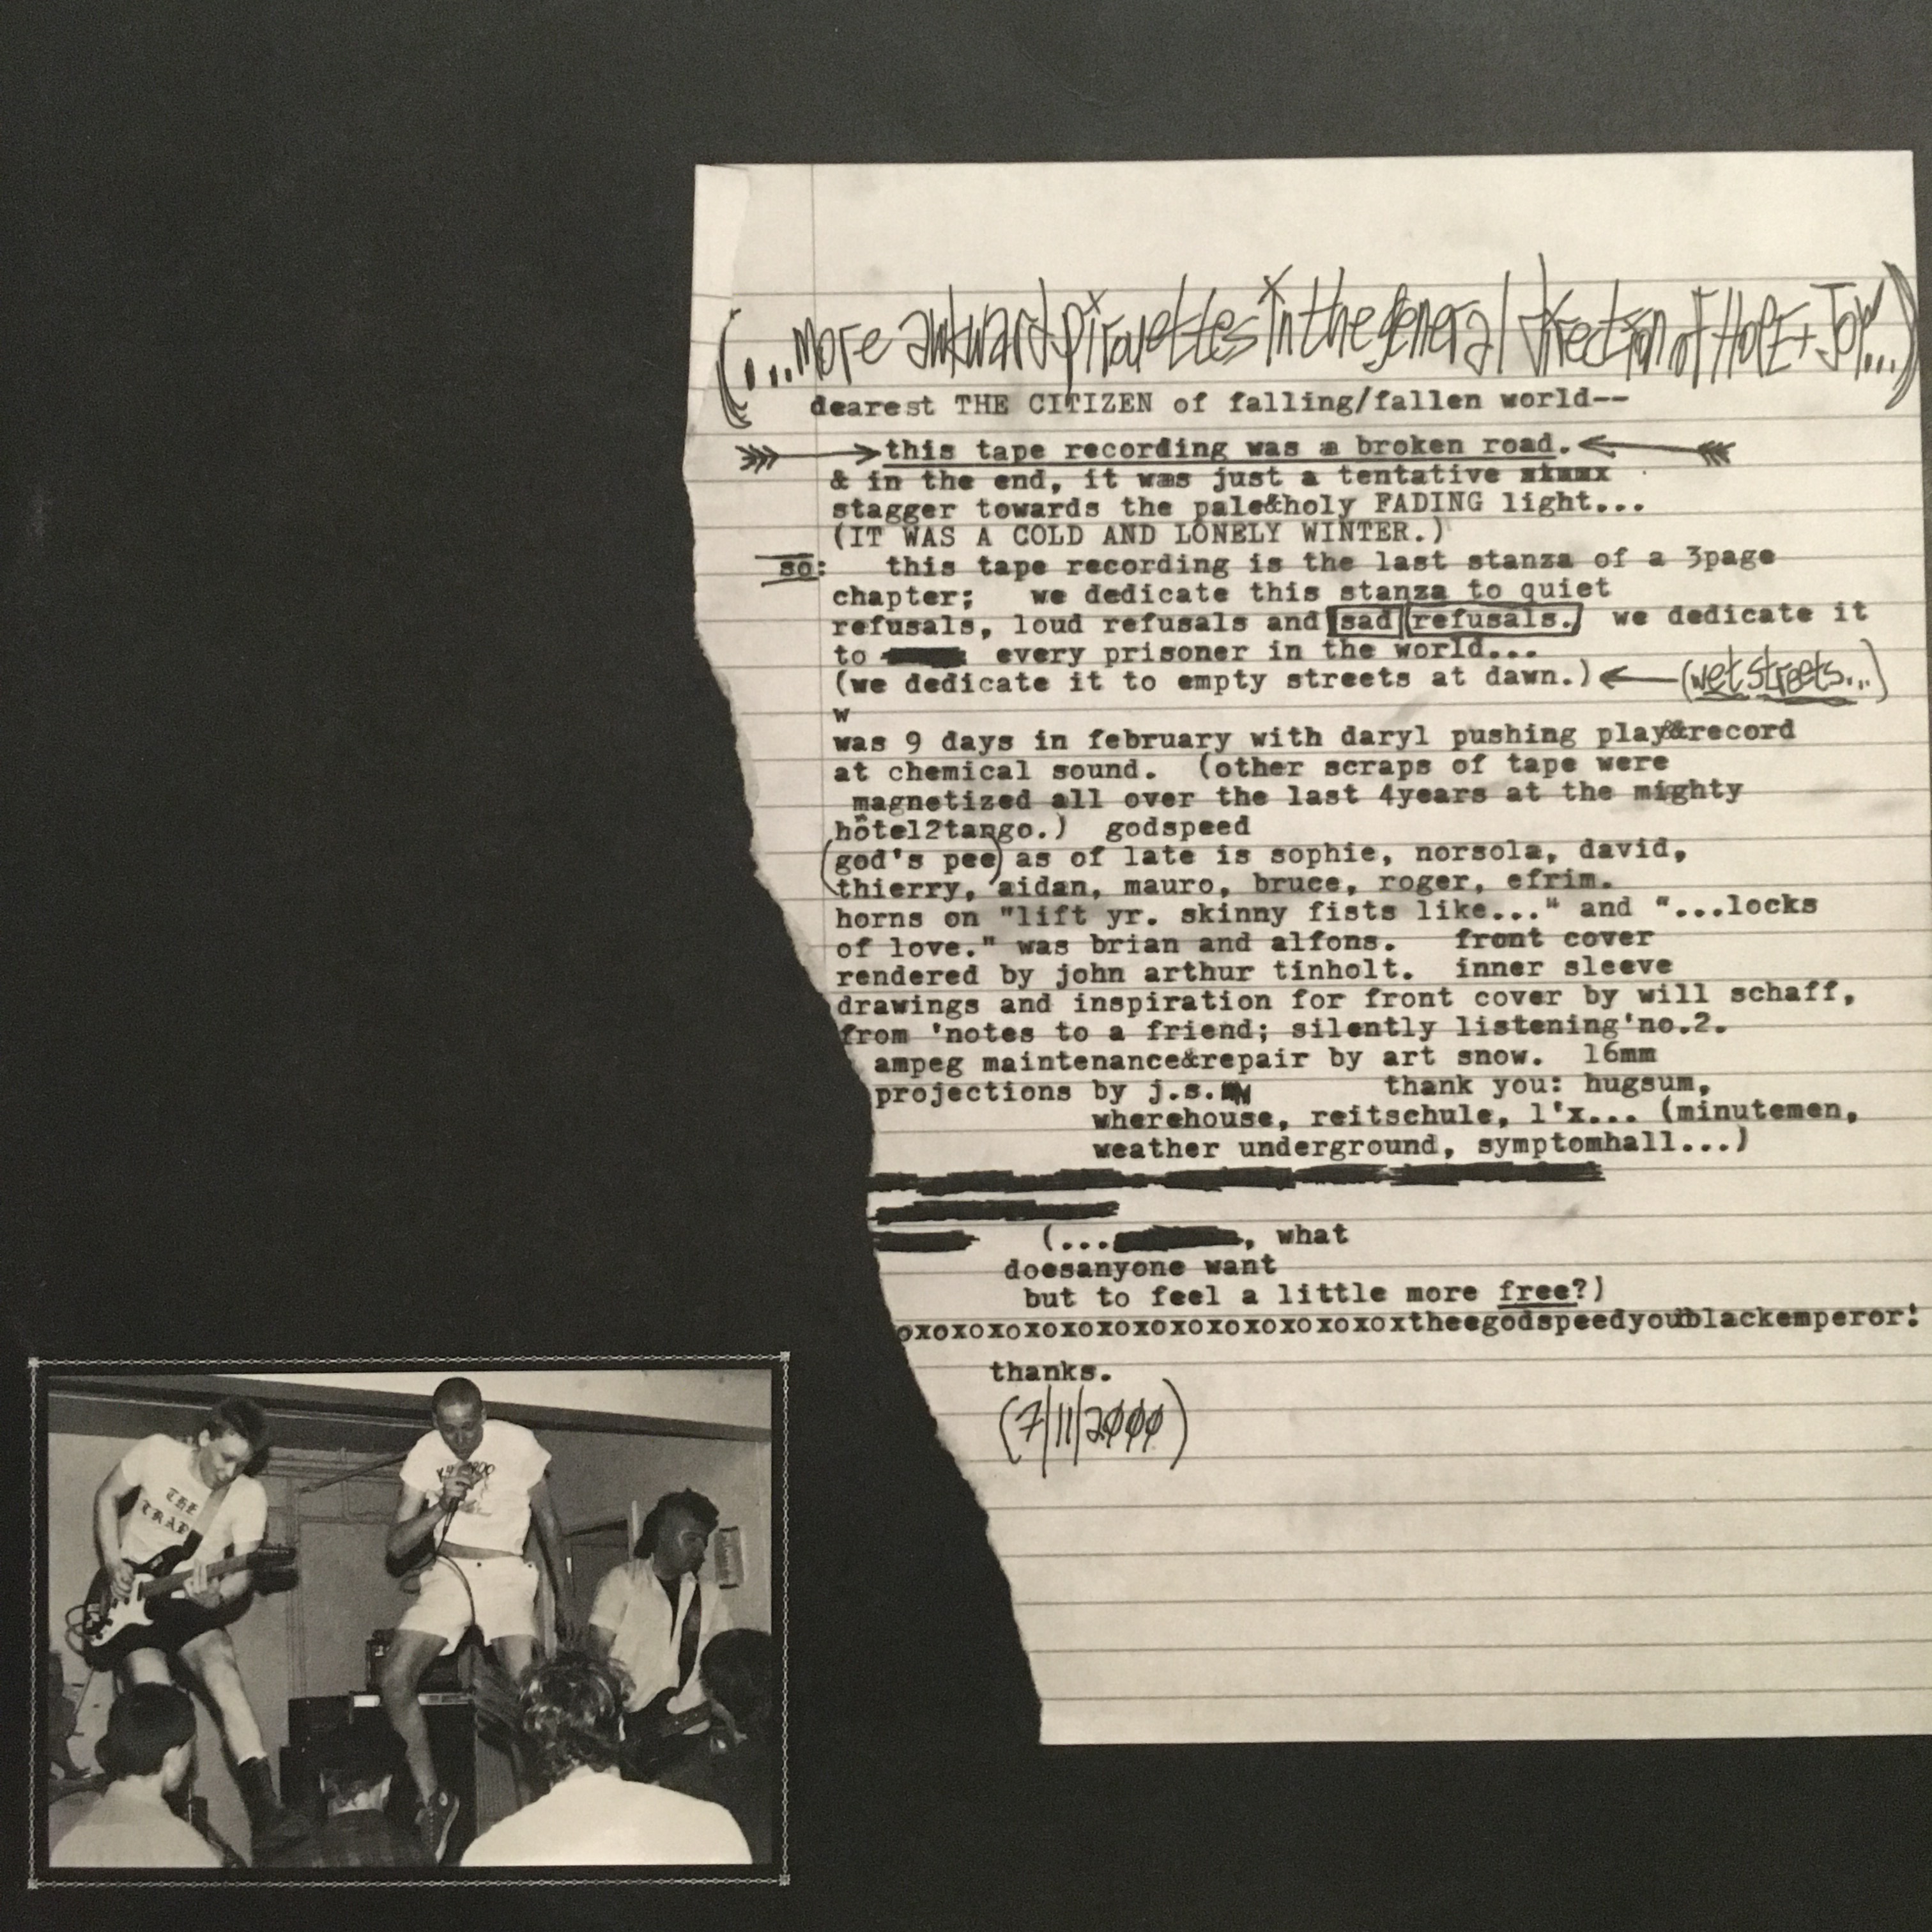 (...more awkward pirouettes in the general direction of HOPE + JOY...)
dearest THE CITIZEN of falling/fallen world--
this tape recording was a broken road.
& in the end, it was just a tentative
stagger towards the pale&holy FADING light...
(IT WAS A COLD AND LONELY WINTER.)
so: this tape recording is the last stanza of a 3page
chapter; we dedicate this stanza to quiet
refusals, loud refusals and sad refusals. we dedicate it
to every prisoner in the world...
(we dedicate it to empty streets at dawn.) (wet streets...)
w
was 9 days in february with daryl pushing play&record
at chemical sound. (other scraps of tape were
magnetized all over the last 4years at the mighty
hôtel2tango.) godspeed
(god's pee) as of late is sophie, norsola, david,
thierry, aidan, mauro, bruce, roger, efrim.
horns on "lift yr. skinny fists like..." and "...locks
of love." was brian and alfons. front cover
rendered by john arthur tinholt. inner sleeve
drawings and inspiration for front cover by will schaff,
from 'notes to a friend; silently listening'no.2.
ampeg maintenance&repair by art snow. 16mm
projections by j.s. thank you: hugsum,
wherehouse, reitschule, l'x... (minutemen,
weather underground, symptomhall...)
(... , what
doesanyone want
but to feel a little more free?)
oxoxoxoxoxoxoxoxoxoxoxoxoxoxtheegodspeedyoublackemperor!
thanks.
(7/11/2000)
THE
TRAP